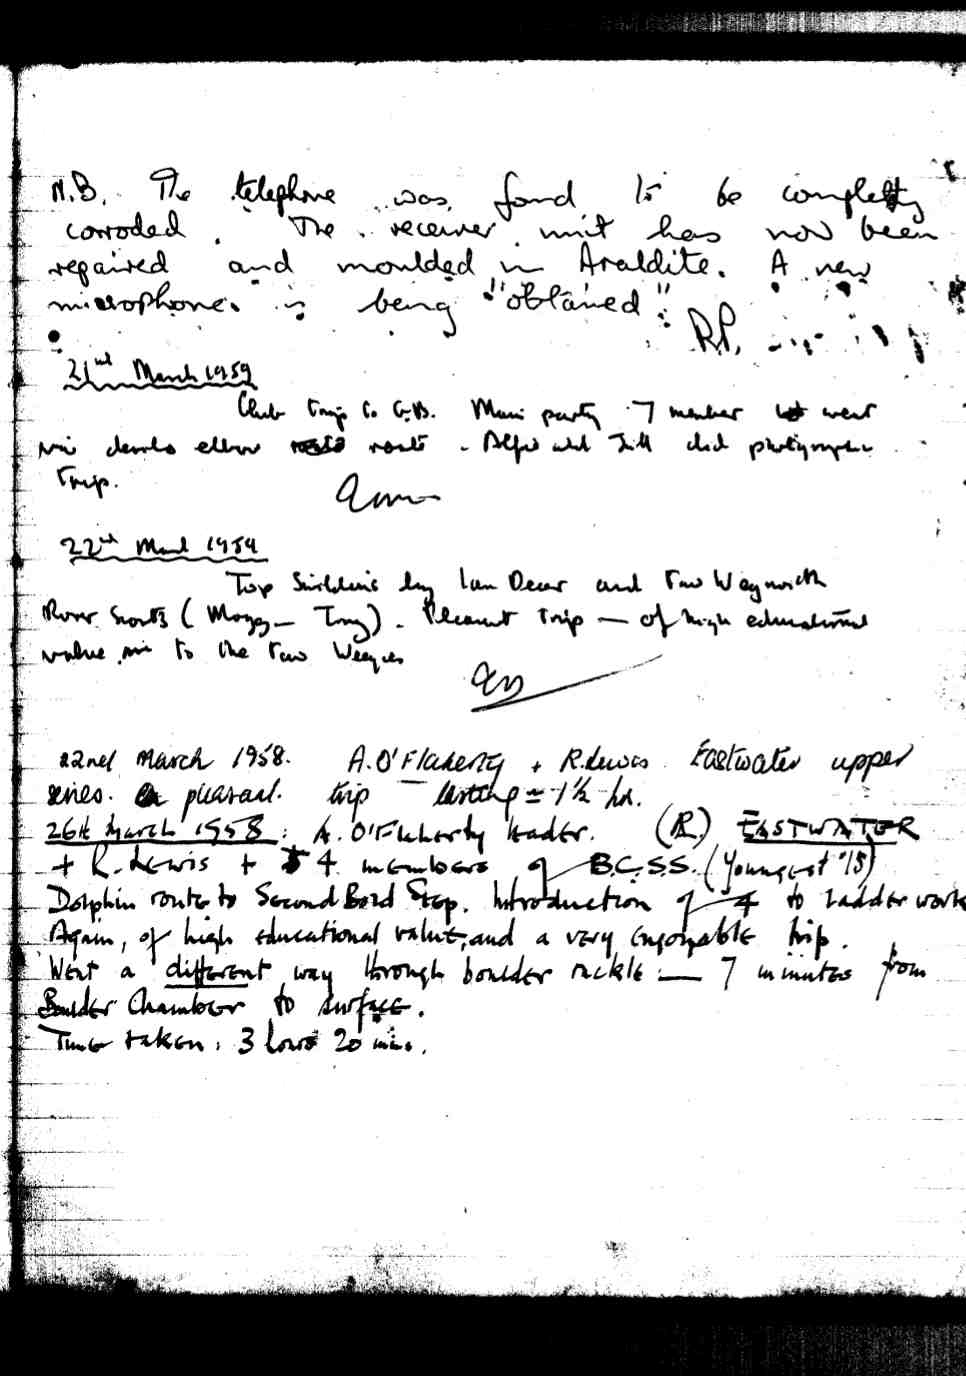 N.B. The telephone was found to be completly
corroded. The receiver unit has now been
repaired and moulded in Araldite. A new
microphone is being "obtained".
R.P.
21st March 1959
Club trip to G.B. Main party 7 member went
via devils elbow route. Alfie and Jill did photographic
trip.
22nd March 1959
Top Swildons by Ian Dear and two Weymouth
Rover Scouts ( ). Pleasant trip — of high educational
value to the two
22nd March 1958. A. O'Flaherty + R. Lewis Eastwater upper
series. pleasant trip lasting ≃ 1½ hr.
26th March 1958: A. O'Flaherty leader. (R.) EASTWATER
+ R. Lewis + 4 members of B.C.S.S. (Youngest 15)
Dolphin route to Second Bold Step. Introduction of 4 to ladder work
Again, of high educational value, and a very enjoyable trip.
Went a different way through boulder ruckle — 7 minutes from
Boulder Chamber to surface.
Time taken: 3 hours 20 mins.